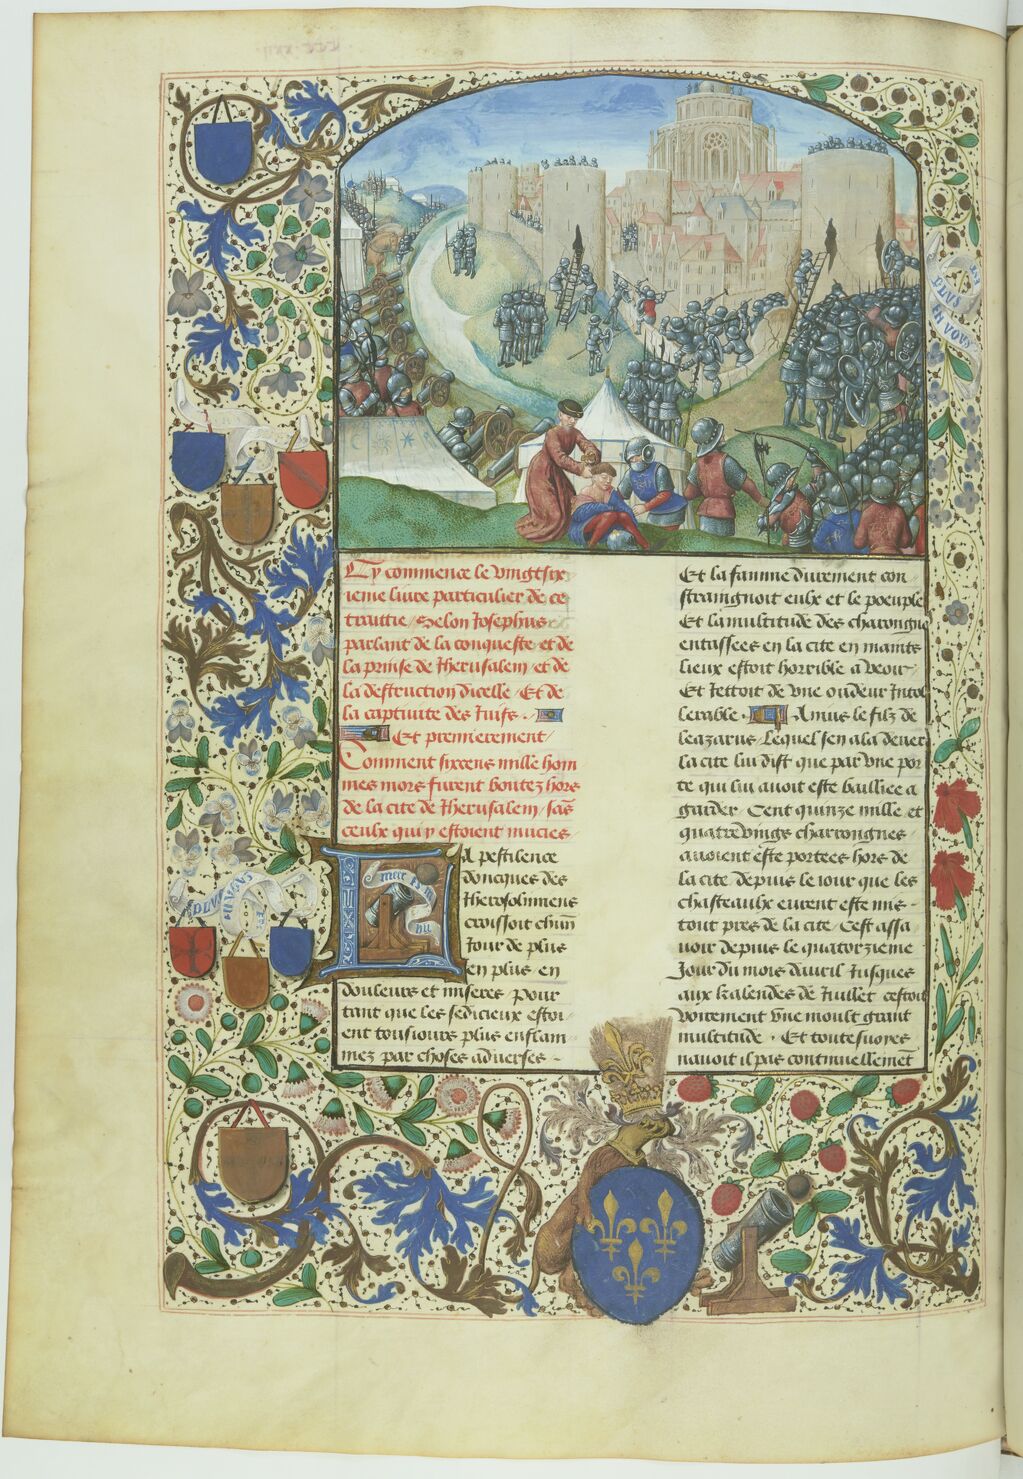 Cy commence le vingtsix
ieme livre particulier de ce
traittie / Selon Josephus
parlant de la conqueste et de
la prinse de Jherusalem et de
la destruction dicelle Et de
la captivite des Juifs .
Et premierement /
Comment sixcens mille hom
mes mors furent boutez hors
de la cite de Jherusalem / sās
ceulx qui y estoient muciés
La pestilence
doncques des
Jherosolimiens
croissoit chūn
Jour de plus
en plus en
douleurs et miseres / Pour
tant que les sedicieux estoi
ent tousiours plus enflam
mez par choses adverses
Et la famine durement con
straingnoit eulx et le poeuple
Et la multitude des charongnes
entassees en la cite en maints
lieux estoit horrible a veoir
Et Jettoit de une oudeur Intol
lerable . Amus le filz de
leazarus / Lequel sen ala dever
la cite lui dist que par une por
te qui lui avoit este bailliee a
garder Cent quinze mille et
quatrevings charrongnes
avoient este portees hors de
la cite depuis le iour que les
chasteaulx eurent este mis
tout pres de la cite / Cest assa
voir depuis le quatorzieme
Jour du mois davril Jusques
aux kalendes de Juillet cestoit
voirement vne moult grant
multitude . Et toutesuoyes
navoit il pas continuellemet
PLUS
EN VOUS
PLUS
EN VOUS